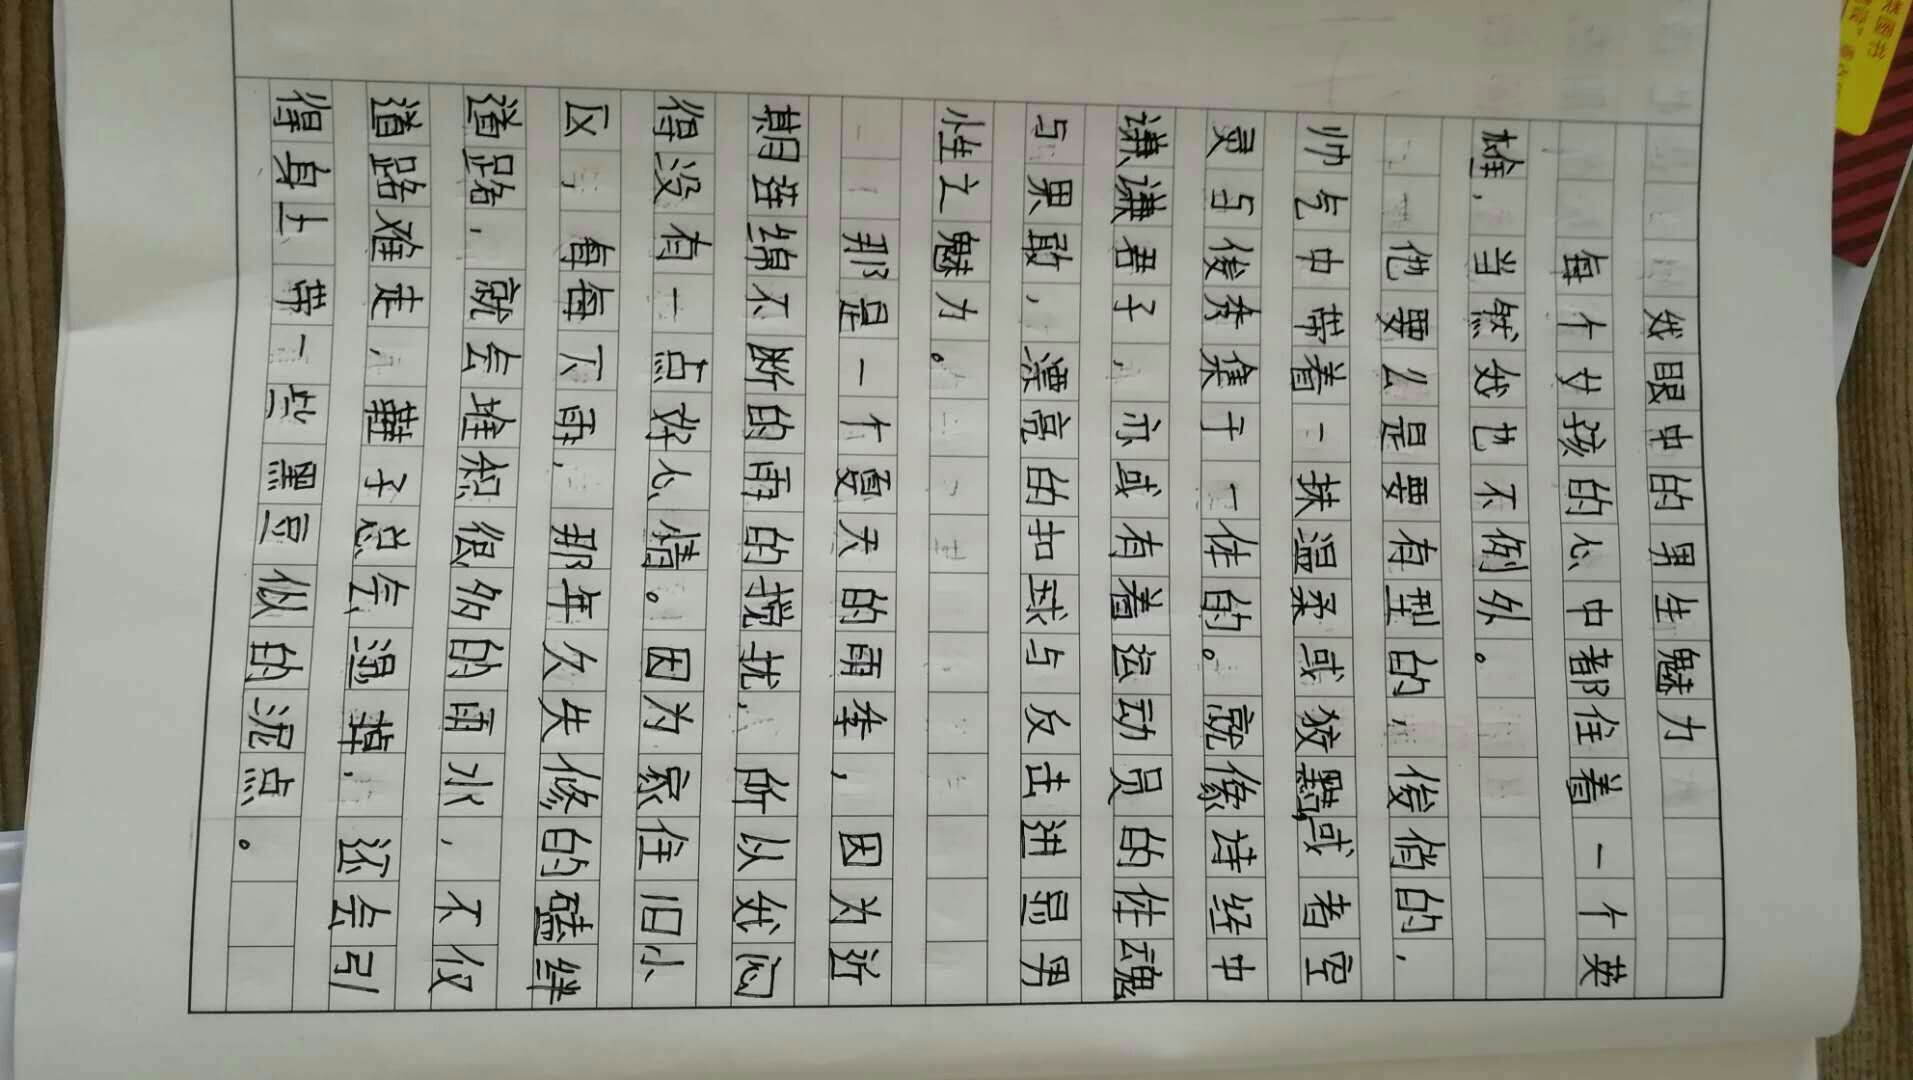 我眼中的男生魅力
每个女孩的心中都住着一个英
雄，当然我也不例外。
他要么是要有型的，俊俏的，
帅气中带着一抹温柔或狡黠，或者空
灵与俊秀集于一体的。就像诗经中
谦谦君子，亦或有着运动员的体魄
与果敢，漂亮的扣球与反击迸显男
性之魅力。
那是一个夏天的雨季，因为近
期连绵不断的雨的搅扰，所以我闷
得没有一点好心情。因为家住旧小
区，每每下雨，那年久失修的磕绊
道路，就会堆积很多的雨水，不仅
道路难走，鞋子总会湿掉，还会引
得身上带一些黑豆似的泥点。